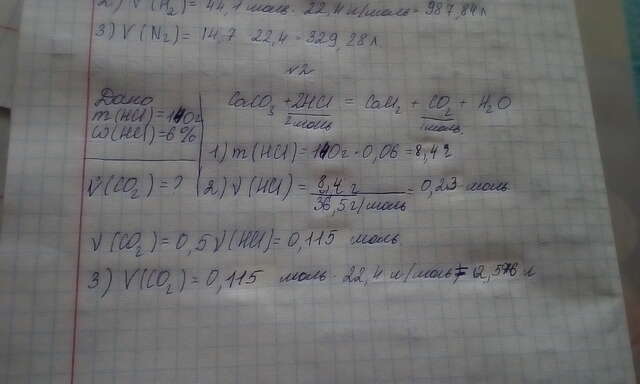 2) V(H₂) = 44,1 моль · 22,4 л/моль = 987,84 л
3) V(N₂) = 14,7 22,4 = 329,28 л
№2
Дано
m(HCl) = 140г
ω(HCl) = 6%
V(CO₂) = ?
CaCO₃ + 2HCl = CaCl₂ + CO₂ + H₂O
2 моль 1 моль
1) m(HCl) = 140г · 0,06 = 8,4 г
2) ν(HCl) = 8,4 г / 36,5 г/моль = 0,23 моль
ν(CO₂) = 0,5 ν(HCl) = 0,115 моль
3) V(CO₂) = 0,115 моль · 22,4 л/моль = 2,576 л